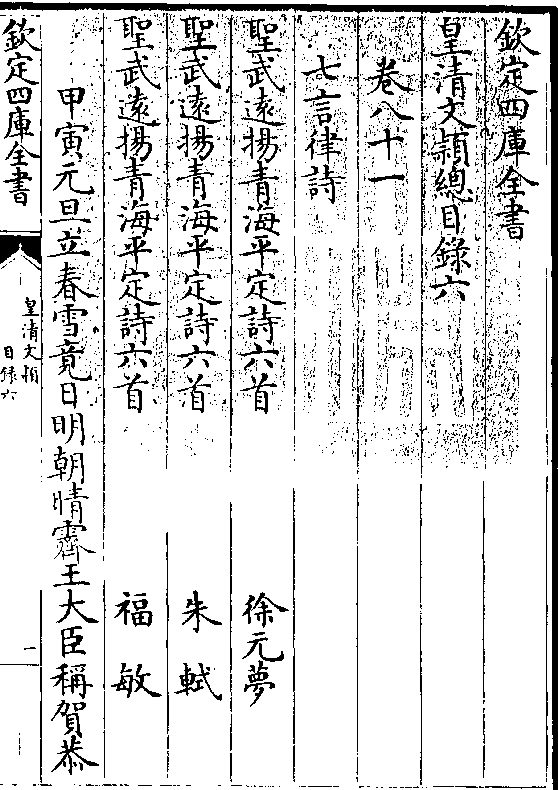 欽定四庫全書
皇清文穎總目録六
卷八十一
七言律詩
聖武遠揚青海平定詩六首 徐元夢
聖武遠揚青海平定詩六首 朱軾
聖武遠揚青海平定詩六首 福敏
甲寅元旦立春雪竟日明朝晴霽王大臣稱賀恭
欽定四庫全書
皇清文穎
目録六
一